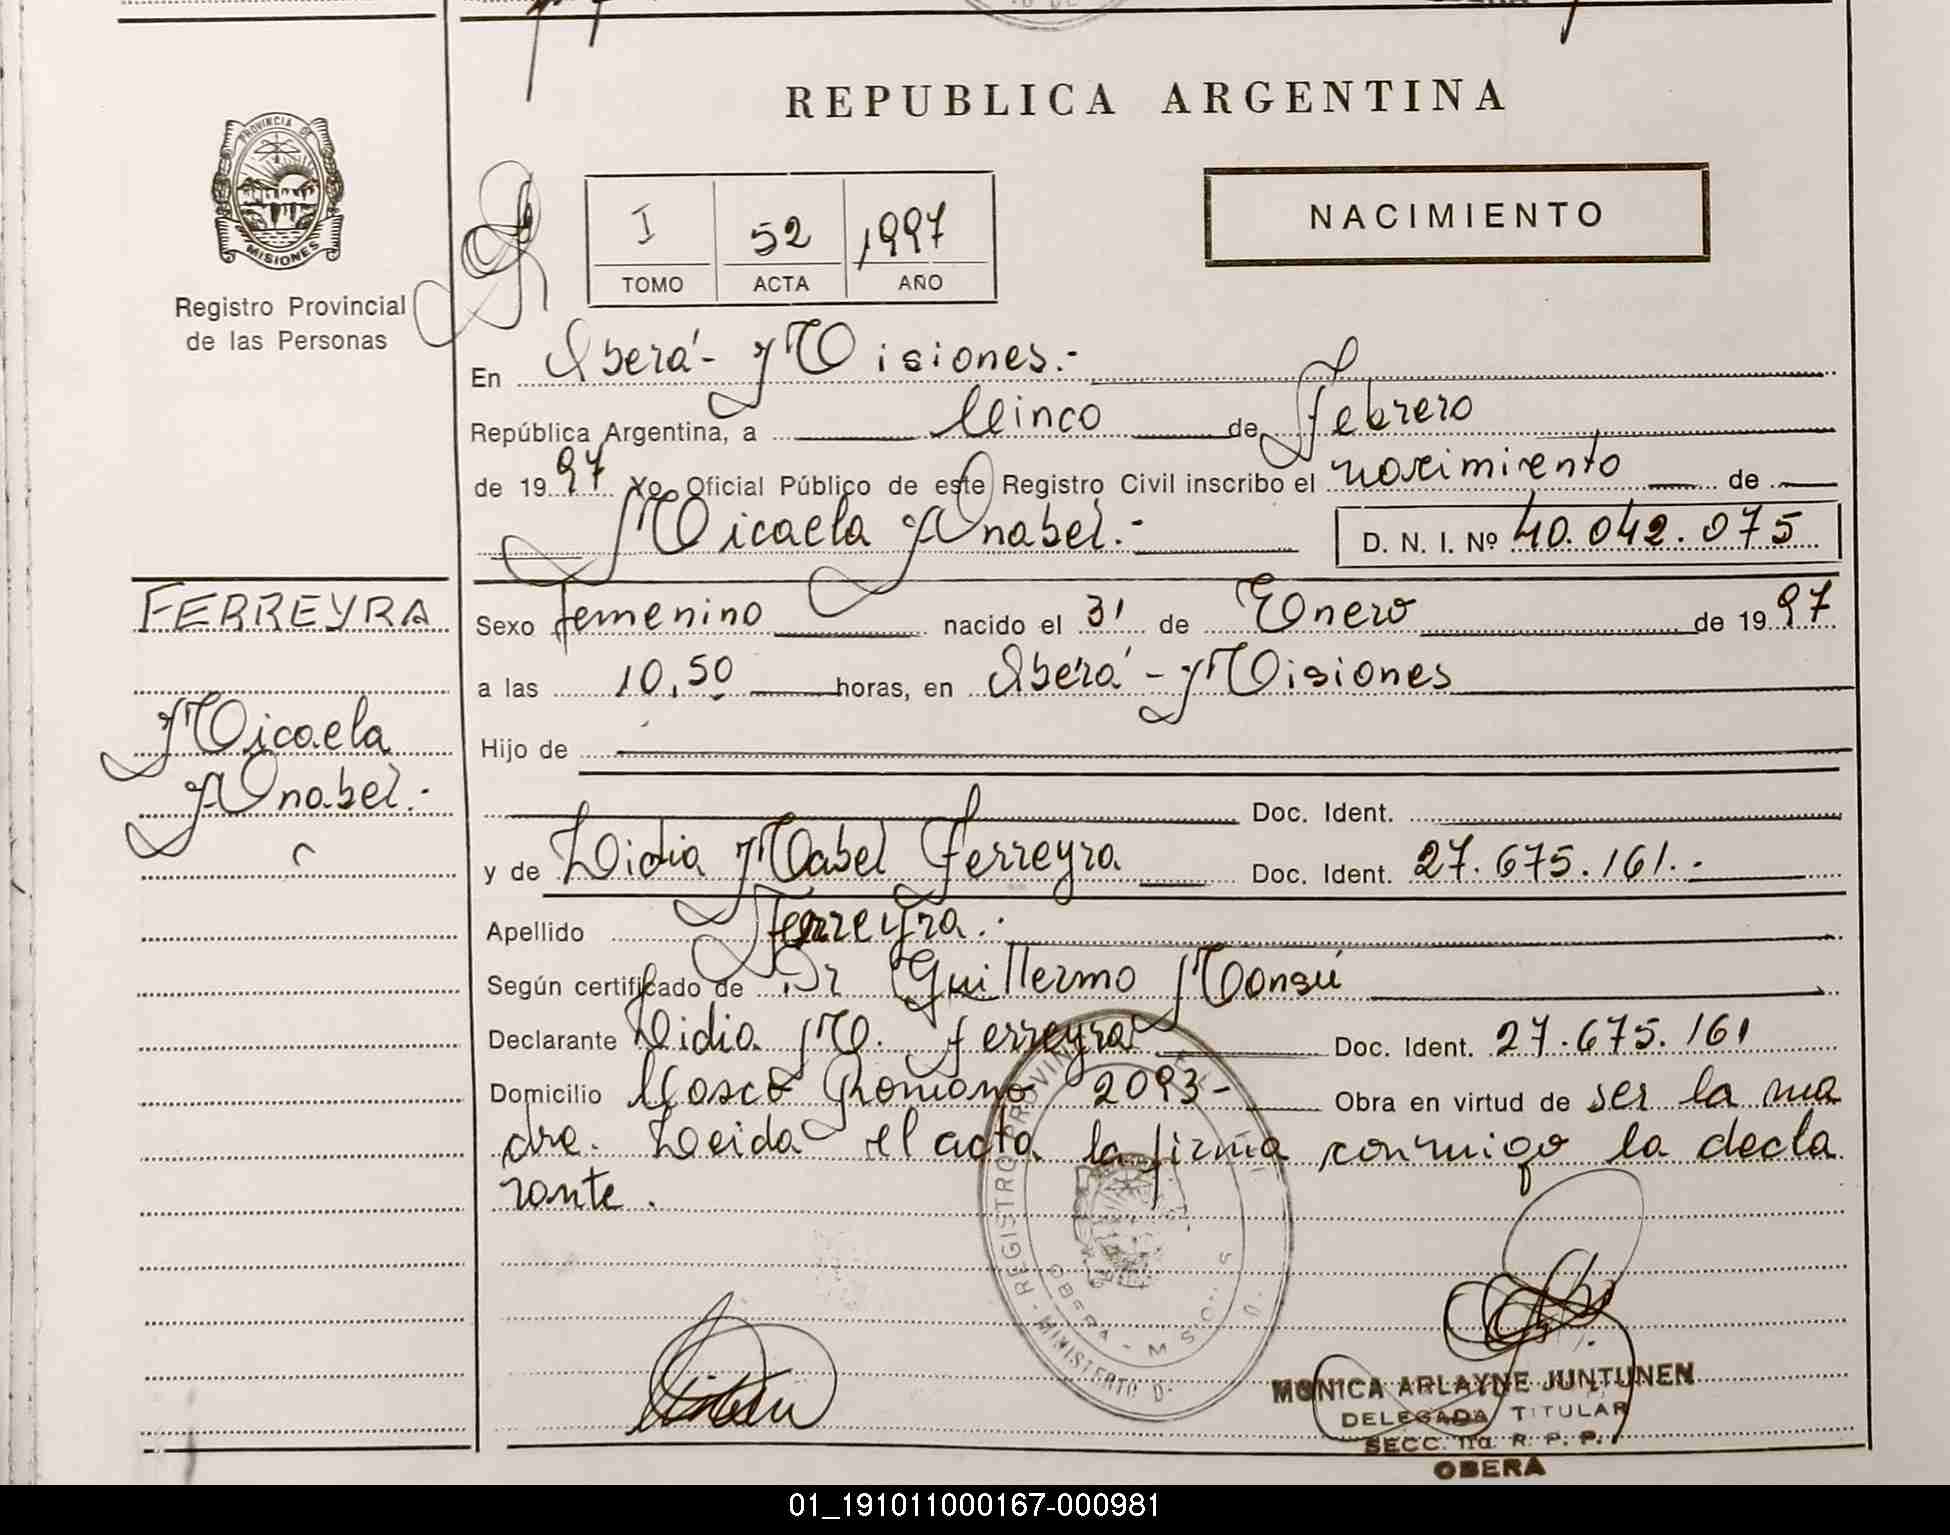 REPUBLICA ARGENTINA
PROVINCIA DE
MISIONES
Registro Provincial
de las Personas
I 52 1997
TOMO ACTA AÑO
NACIMIENTO
En Oberá - Misiones.-
República Argentina, a Cinco de Febrero
de 1997 Yo Oficial Público de este Registro Civil inscribo el nacimiento de
Micaela Anabel.- D. N. I. Nº 40.042.075
FERREYRA
Micaela
Anabel.-
Sexo femenino nacido el 31 de Enero de 1997
a las 10,50 horas, en Oberá - Misiones
Hijo de
Doc. Ident.
y de Lidia Mabel Ferreyra Doc. Ident. 27.675.161.-
Apellido Ferreyra.-
Según certificado de Dr Guillermo Monsú
Declarante Lidia M. Ferreyra Doc. Ident. 27.675.161
Domicilio Romano 2093- Obra en virtud de ser la ma
dre. Leida el acta la firma conmigo la decla
rante.
OBERA
MONICA ARLAYNE JUNTUNEN
DELEGADA TITULAR
SECC. 1ra. R. P. P.
OBERA
01_191011000167-000981